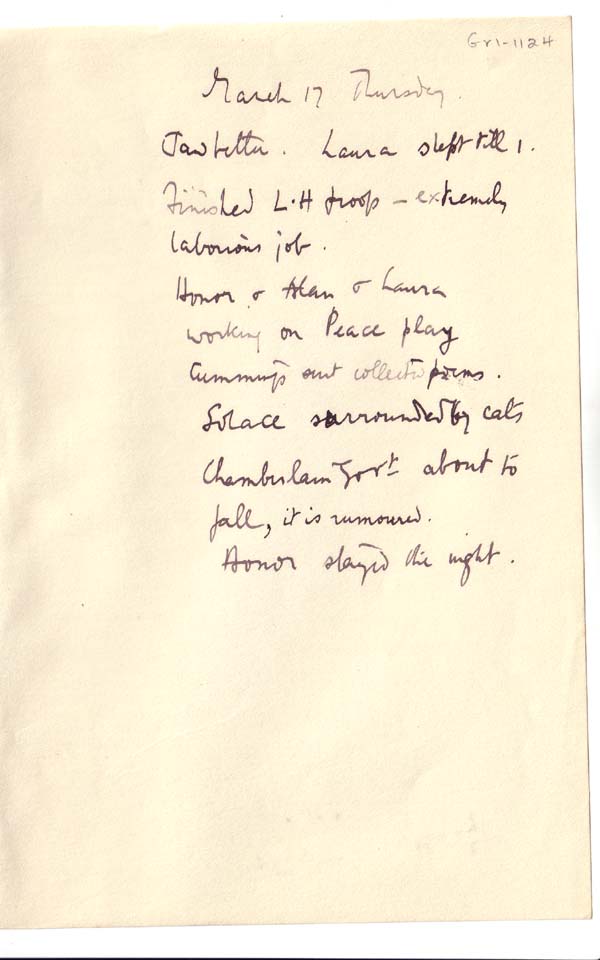 Gr1-1124
March 17 Thursday.
Jaw better. Laura slept till 1.
Finished L.H proofs – extremely
laborious job.
Honor & Alan & Laura
working on Peace play
Cummings sent collected poems.
Solace surrounded by cats
Chamberlain Govt about to
fall, it is rumoured.
Honor stayed the night.